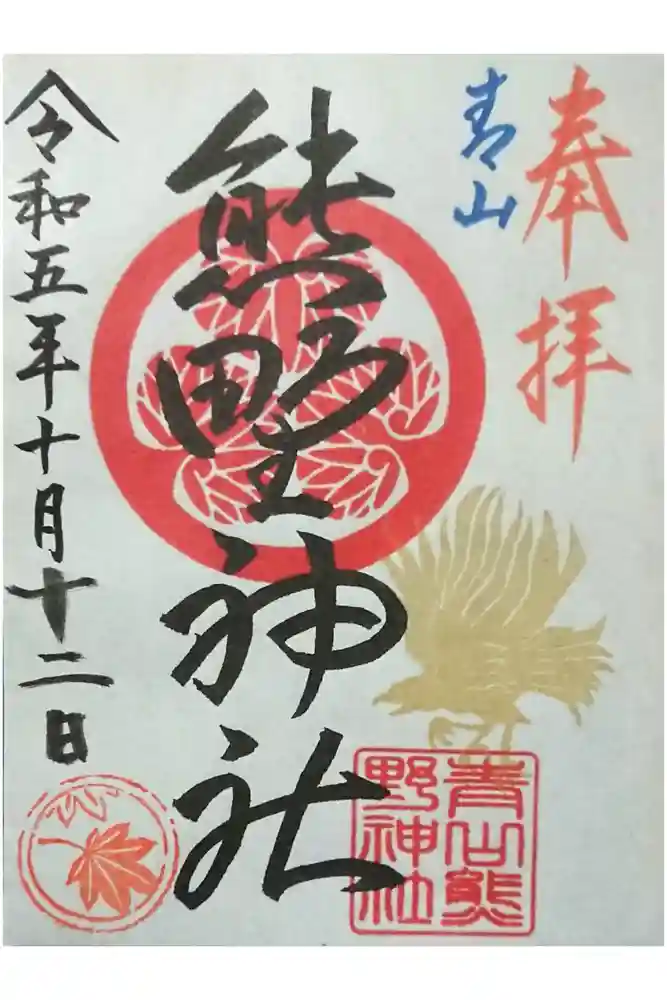 奉拝
青山
熊野神社
青山熊
野神社
令和五年十月十二日